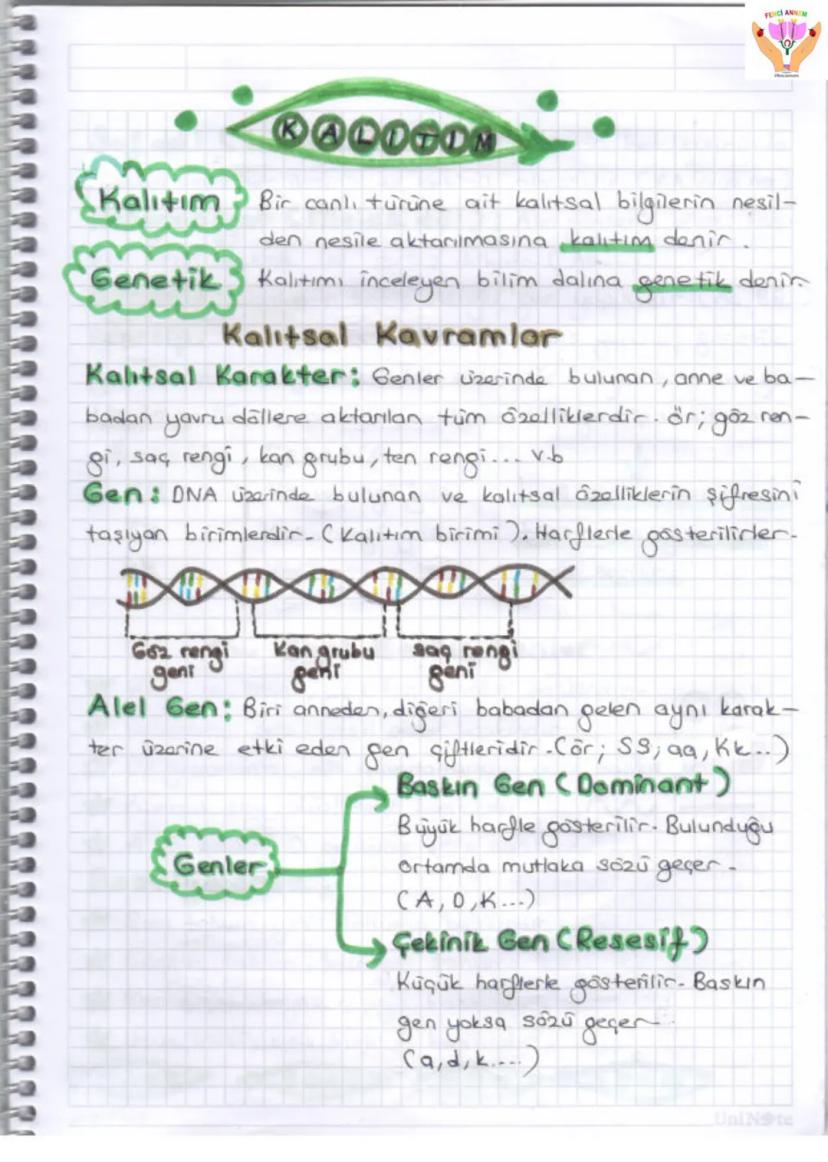 FENCİ ANNEM
KALITIM
Kalıtım Bir canlı türüne ait kalıtsal bilgilerin nesil-
den nesile aktarılmasına kalıtım denir.
Genetik Kalıtımı inceleyen bilim dalına genetik denir.
Kalıtsal Kavramlar
Kalıtsal Karakter: Genler üzerinde bulunan, anne ve ba-
badan yavru döllere aktarılan tüm özelliklerdir. Ör; göz ren-
gi, saç rengi, kan grubu, ten rengi... v.b
Gen: DNA üzerinde bulunan ve kalıtsal özelliklerin şifresini
taşıyan birimlerdir. (Kalıtım birimi). Harflerle gösterilirler.
Göz rengi geni
Kan grubu geni
saç rengi geni
Alel Gen: Biri anneden, diğeri babadan gelen aynı karak-
ter üzerine etki eden gen çiftleridir. (ör; SS, aa, Kk..)
Baskın Gen (Dominant)
Büyük harfle gösterilir. Bulunduğu
Genler
ortamda mutlaka sözü geçer.
(A, D, K...)
Çekinik Gen (Resesif)
Küçük harflerle gösterilir. Baskın
gen yoksa sözü geçer
(a, d, k....)
UniNote